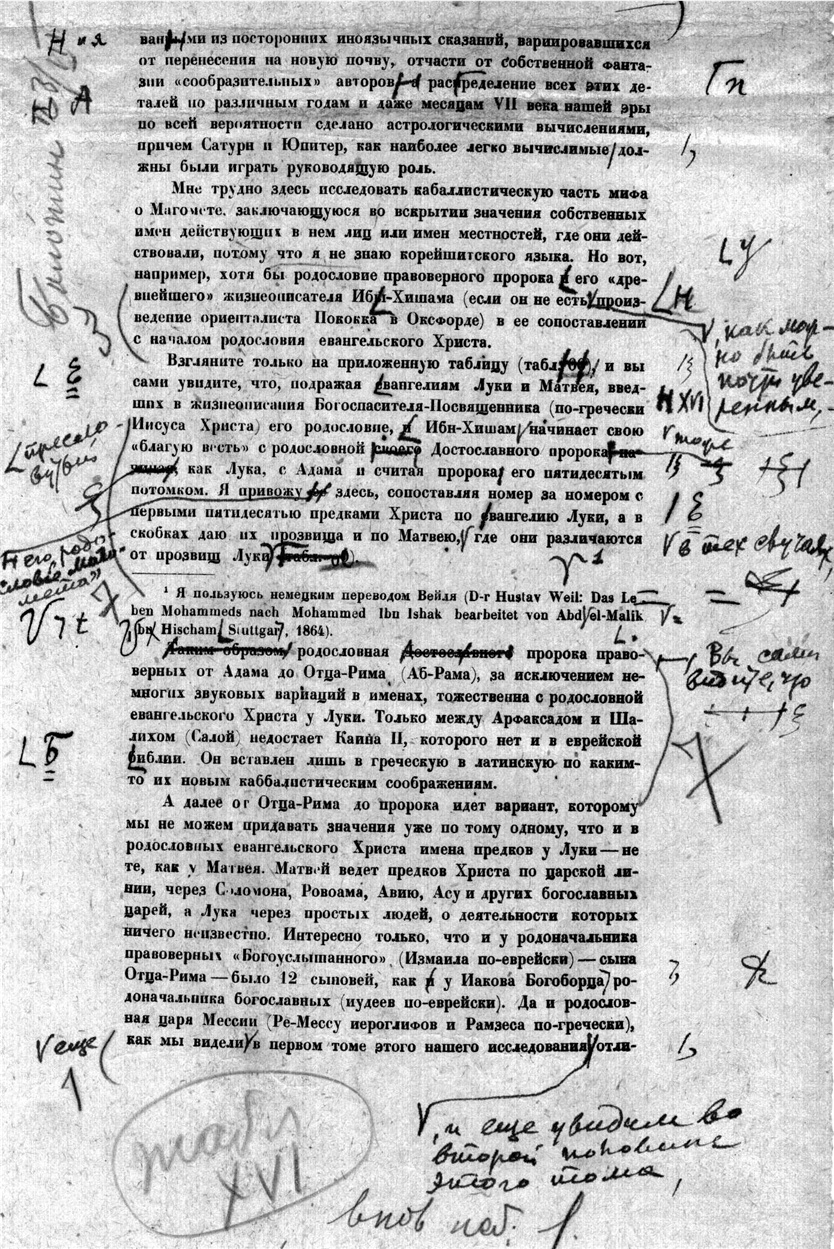 ванными из посторонних иноязычных сказаний, вариировавшихся
от перенесения на новую почву, отчасти от собственной фанта-
зии «сообразительных» авторов, распределение всех этих де-
талей по различным годам и даже месяцам VII века нашей эры
по всей вероятности сделано астрологическими вычислениями,
причем Сатурн и Юпитер, как наиболее легко вычислимые, дол-
жны были играть руководящую роль.
Мне трудно здесь исследовать кабаллистическую часть мифа
о Магомете, заключающуюся во вскрытии значения собственных
имен действующих в нем лиц или имен местностей, где они дей-
ствовали, потому что я не знаю корейшитского языка. Но вот,
например, хотя бы родословие правоверного пророка его «дре-
внейшего» жизнеописателя Ибн-Хишама (если он не есть произ-
ведение ориенталиста Пококка в Оксфорде) в ее сопоставлении
с началом родословия евангельского Христа.
Взгляните только на приложенную таблицу (табл. ), и вы
сами увидите, что, подражая евангелиям Луки и Матвея, введ-
ших в жизнеописания Богоспасителя-Посвященника (по-гречески
Иисуса Христа) его родословие, Ибн-Хишам начинает свою
«благую весть» с родословной своего Достославного пророка
как Лука, с Адама и считая пророка его пятидесятым
потомком. Я привожу здесь, сопоставляя номер за номером с
первыми пятидесятью предками Христа по евангелию Луки, а в
скобках даю их прозвища и по Матвею, где они различаются
от прозвищ Луки (табл. ).
¹ Я пользуюсь немецким переводом Вейля (D-r Hustav Weil: Das Le-
ben Mohammeds nach Mohammed Ibn Ishak bearbeitet von Abd el-Malik
ibn Hischam Stuttgart, 1864).
Таким образом родословная Достославного пророка право-
верных от Адама до Отца-Рима (Аб-Рама), за исключением не-
многих звуковых вариаций в именах, тожественна с родословной
евангельского Христа у Луки. Только между Арфаксадом и Ша-
лихом (Салой) недостает Каина II, которого нет и в еврейской
библии. Он вставлен лишь в греческую в латинскую по каким-
то их новым каббалистическим соображениям.
А далее от Отца-Рима до пророка идет вариант, которому
мы не можем придавать значения уже по тому одному, что и в
родословных евангельского Христа имена предков у Луки — не
те, как у Матвея. Матвей ведет предков Христа по царской ли-
нии, через Соломона, Ровоама, Авию, Асу и других богославных
царей, а Лука через простых людей, о деятельности которых
ничего неизвестно. Интересно только, что и у родоначальника
правоверных «Богоуслышанного» (Измаила по-еврейски) — сына
Отца-Рима — было 12 сыновей, как и у Иакова Богоборца ро-
доначальника богославных (иудеев по-еврейски). Да и родослов-
ная царя Мессии (Ре-Мессу иероглифов и Рамзеса по-гречески),
как мы видели в первом томе этого нашего исследования отли-
, как мож-
но быть
почти уве-
ренным, -
XVI
в тех случаях,
Вы сами
видите, что
еще
, и еще увидим во
второй половине
этого тома,
табл
XVI